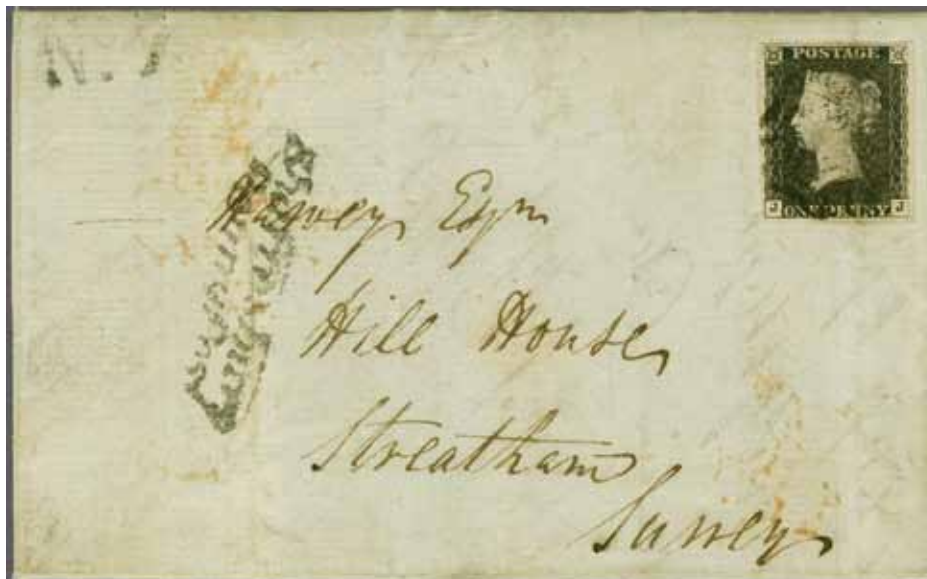 POSTAGE
ONE PENNY
J J
Harvey Esqr
Hill House
Streatham
Surrey